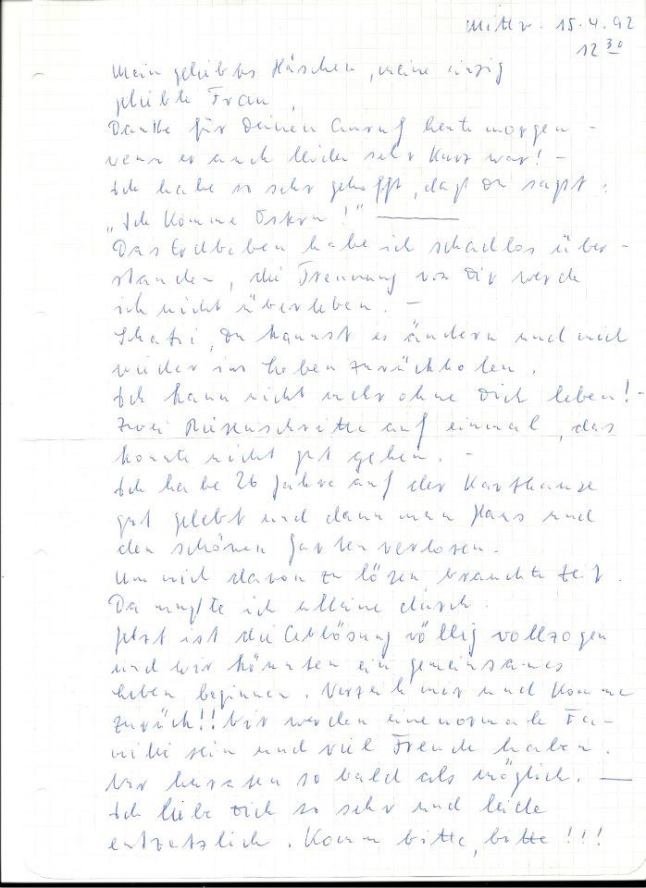 Mittw. 15.4.92
12 30
Mein geliebtes Häschen, meine einzig
geliebte Frau,
Danke für Deinen Anruf heute morgen -
wenn er auch leider sehr kurz war! -
Ich habe so sehr gehofft, daß Du sagst:
"Ich komme Ostern!"
Das Erdbeben habe ich schadlos über-
standen, die Trennung von Dir werde
ich nicht überleben. -
Schatzi, Du kannst es ändern und mich
wieder ins Leben zurückholen.
Ich kann nicht mehr ohne Dich leben! -
Zwei Riesenschritte auf einmal, das
konnte nicht gut gehen. -
Ich habe 26 Jahre auf der Karthause
gut gelebt und dann mein Haus und
den schönen Garten verloren.
Um mich davon zu lösen brauchte Zeit.
Da mußte ich alleine durch.
Jetzt ist die Ablösung völlig vollzogen
und wir könnten ein gemeinsames
Leben beginnen. Verzeih mir und komme
zurück!! Wir werden eine normale Fa-
milie sein und viel Freude haben.
Wir heiraten so bald als möglich. —
Ich liebe Dich so sehr und leide
entsetzlich. Komm bitte, bitte!!!